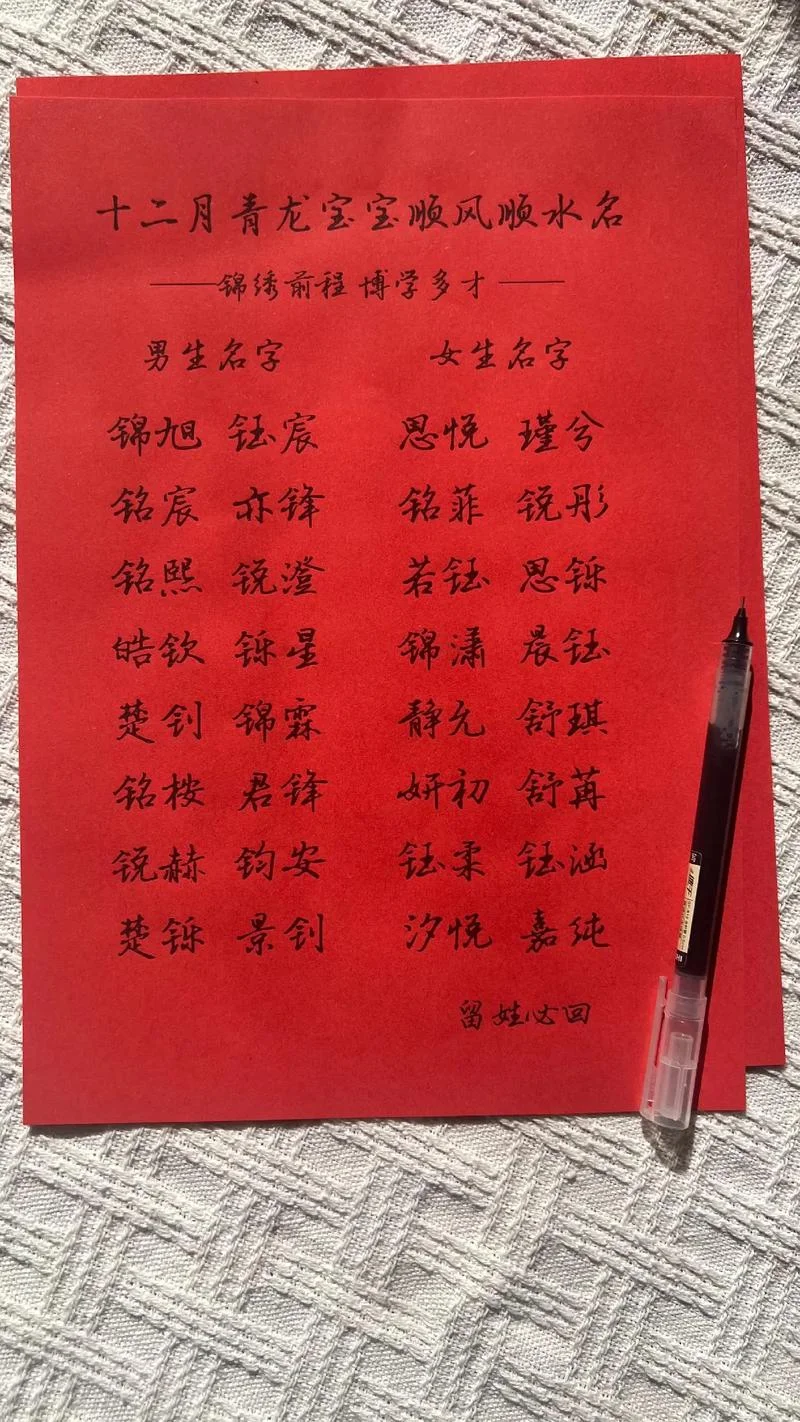 十二月青龙宝宝顺风顺水名
——锦绣前程 博学多才——
男生名字 女生名字
锦旭 钰宸 思悦 瑾兮
铭宸 亦锋 铭菲 锐彤
铭熙 锐澄 若钰 思铄
皓钦 铄星 锦潇 晨钰
楚钊 锦霖 静允 舒琪
铭桉 君锋 妍初 舒苒
锐赫 钧安 钰柔 钰涵
楚铄 景钊 汐悦 嘉纯
留姓必回